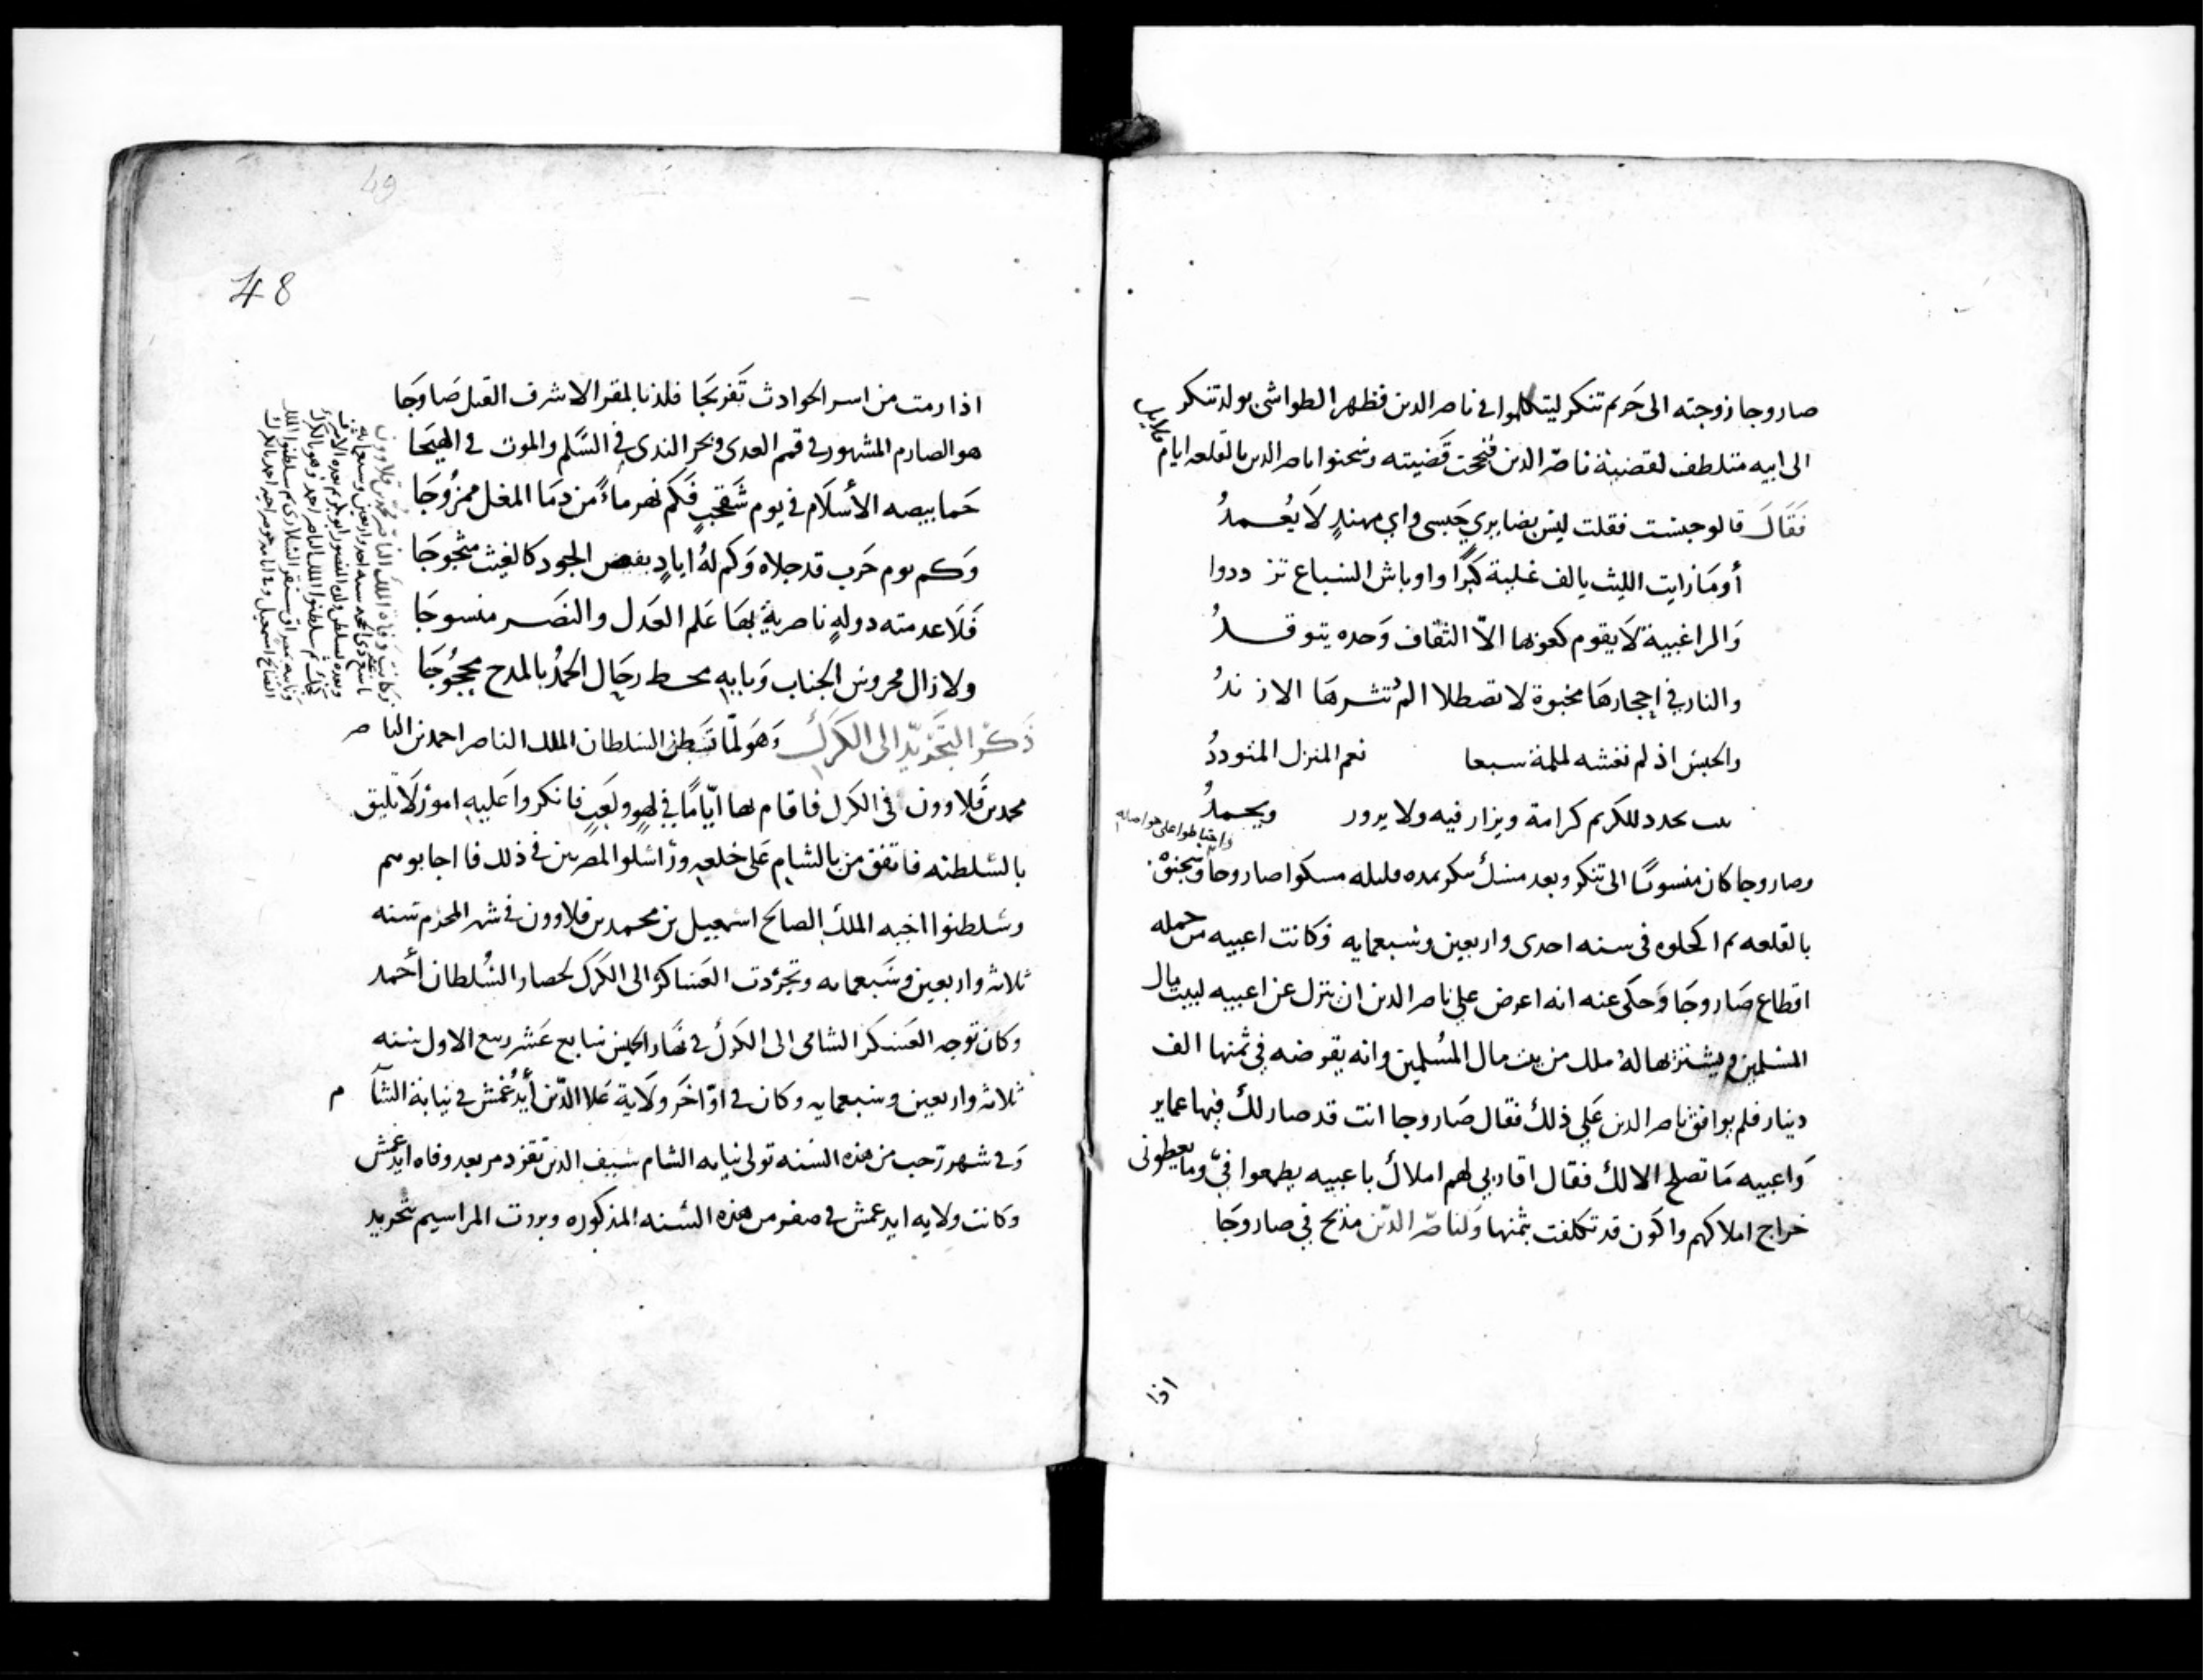 صاروجا زوجته الى حريم تنكر ليتكلموا في ناصر الدين فظهر الطواشي بولد تنكر
الى ابيه متلطف لقضية ناصر الدين فنجحت قضيته وسجنوا ناصر الدين بالقلعه ايام قلايل
فقال قالو حبست فقلت ليس بضايري حبسي واي مهند لا يغمد
أوما رايت الليث يالف غيلة كبرا واوباش السباع تردد وا
والزاغبية لا يقوم كعوبها الا الثقاف وحده يتوقد
والنار في احجارها مخبوة لا تصطلا الم تثرها الازند
والحبس اذ لم تغشه لملمة سبعا نعم المنزل المتودد
بيت يجدد للكريم كرامة ويزار فيه ولا يزور ويحمد
وصاروجا كان منسوبا الى تنكر وبعد مسك تنكر بمده قليله مسكوا صاروجا وسجنوه
واحتاطوا على حواصله
بالقلعه ثم اكحلوه في سنه احدى واربعين وسبعمايه وكانت اعبيه من جمله
اقطاع صاروجا وحكى عنه انه اعرض على ناصر الدين ان ينزل عن اعبيه لبيت مال
المسلمين ويشتريها له ملك من بيت مال المسلمين وانه يقرضه في ثمنها الف
دينار فلم يوافق ناصر الدين على ذلك فقال صاروجا انت قد صار لك فيها عماير
واعبيه ما تصلح الا لك فقال اقاربي لهم املاك باعبيه يطمعوا في وما يعطوني
خراج املاكهم واكون قد تكلفت بثمنها ولناصر الدين مديح في صاروجا
اذا
48
49
اذا رمت من اسر الحوادث تفريجا فلذ بالمقر الاشرف القيل صاروجا
هو الصارم المشهور في قمم العدى وبحر الندى في السلم والموت في الهيجا
حما بيضه الأسلام في يوم شقحب فكم نهر ماء من دما المغل ممزوجا
وكم يوم حرب قد جلاه وكم له اياد بفيض الجود كالغيث مثجوجا
فلا عدمته دوله ناصرية بها علم العدل والنصر منسوجا
ولا زال محروس الجناب وبابه محط رحال الحمد بالمدح محجوجا
ذكر التجريد الى الكرك وهو لما تسلطن السلطان الملك الناصر احمد بن الناصر
محمد بن قلاوون في الكرك فاقام بها اياما في لهو ولعب فانكروا عليه امور لا تليق
بالسلطنه فاتفق من بالشام على خلعه وراسلوا المصريين في ذلك فاجابوهم
وسلطنوا اخيه الملك الصالح اسمعيل بن محمد بن قلاوون في شهر المحرم سنه
ثلاثه واربعين وسبعمايه وتجردت العساكر الى الكرك لحصار السلطان أحمد
وكان توجه العسكر الشامي الى الكرك في نهار الخميس سابع عشر ربيع الاول سنه
ثلاثه واربعين وسبعمايه وكان في اواخر ولاية علا الدين أيدغمش في نيابة الشام
وفي شهر رجب من هذه السنه تولى نيابه الشام سيف الدين تقزدمر بعد وفاه ايدغمش
وكانت ولايه ايدغمش في صفر من هذه السنه المذكوره وبرزت المراسيم بتجريد
وكانت وفاة الملك الناصر محمد بن قلاوون
تاسع عشر ذي الحجه سنه احد واربعين وسبعمايه
وبعده تسلطن ولده المنصور ابو بكر ثم بعده الاشرف
كجك ثم سلطنوا الملك الناصر احمد وهو بالكرك